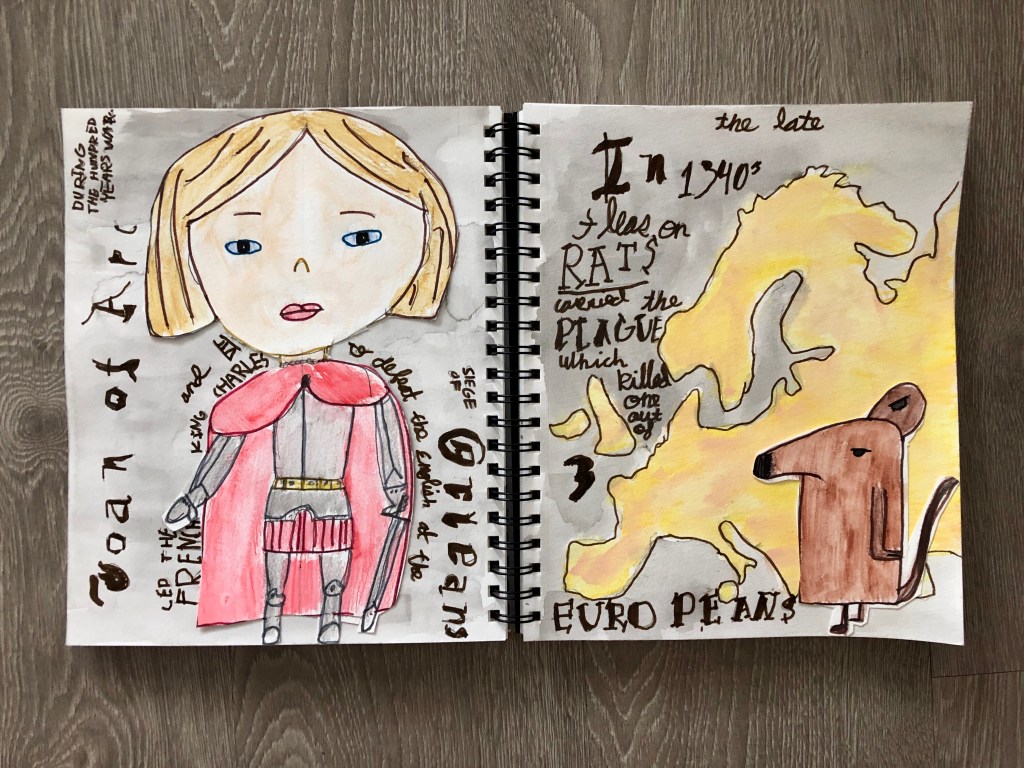 DURING
THE HUNDRED
YEARS WAR.
Joan of Arc
LED THE
FRENCH
KING and
CHARLES VII
to defeat the English at the
SIEGE
OF
Orleans
the late
In 1340s
fleas on
RATS
carried the
PLAGUE
which
killed
one
out
of
3
EUROPEANS